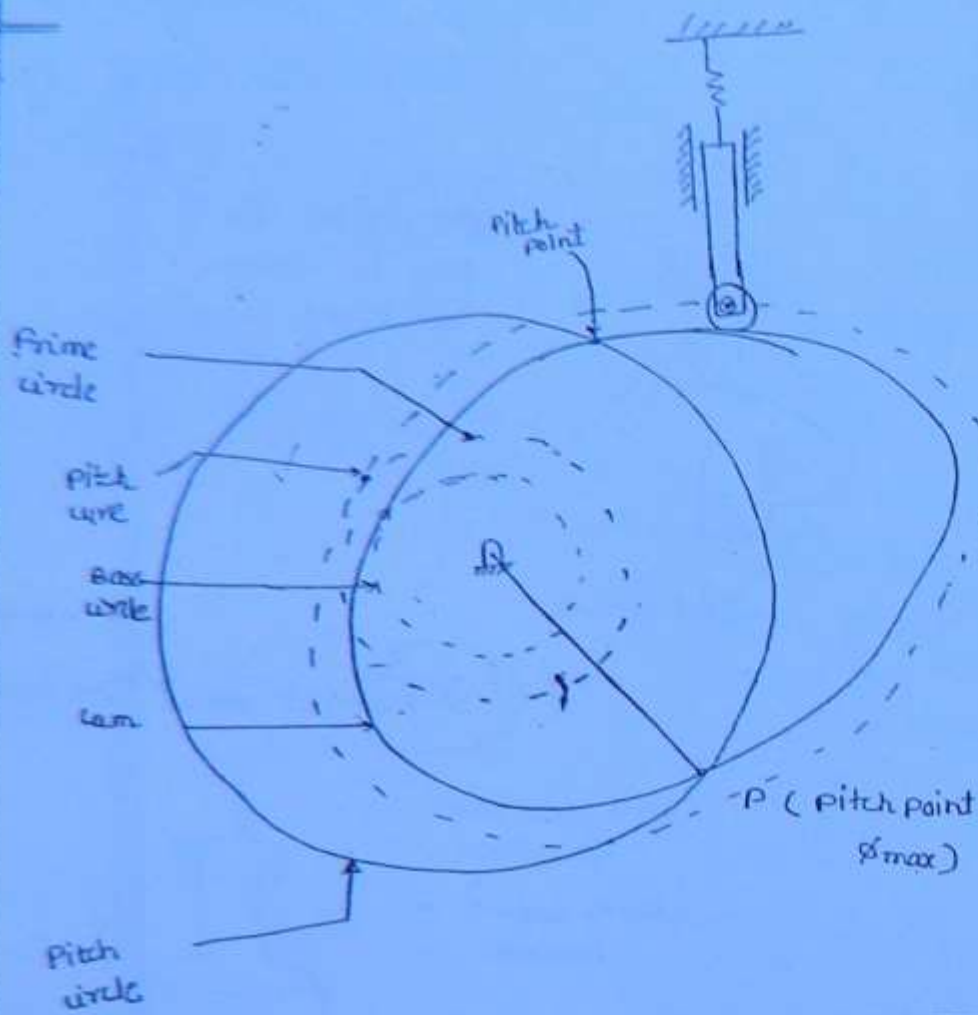 Pitch
point
Prime
circle
Pitch
curve
Base
circle
Cam
P ( Pitch point
Ømax )
Pitch
circle